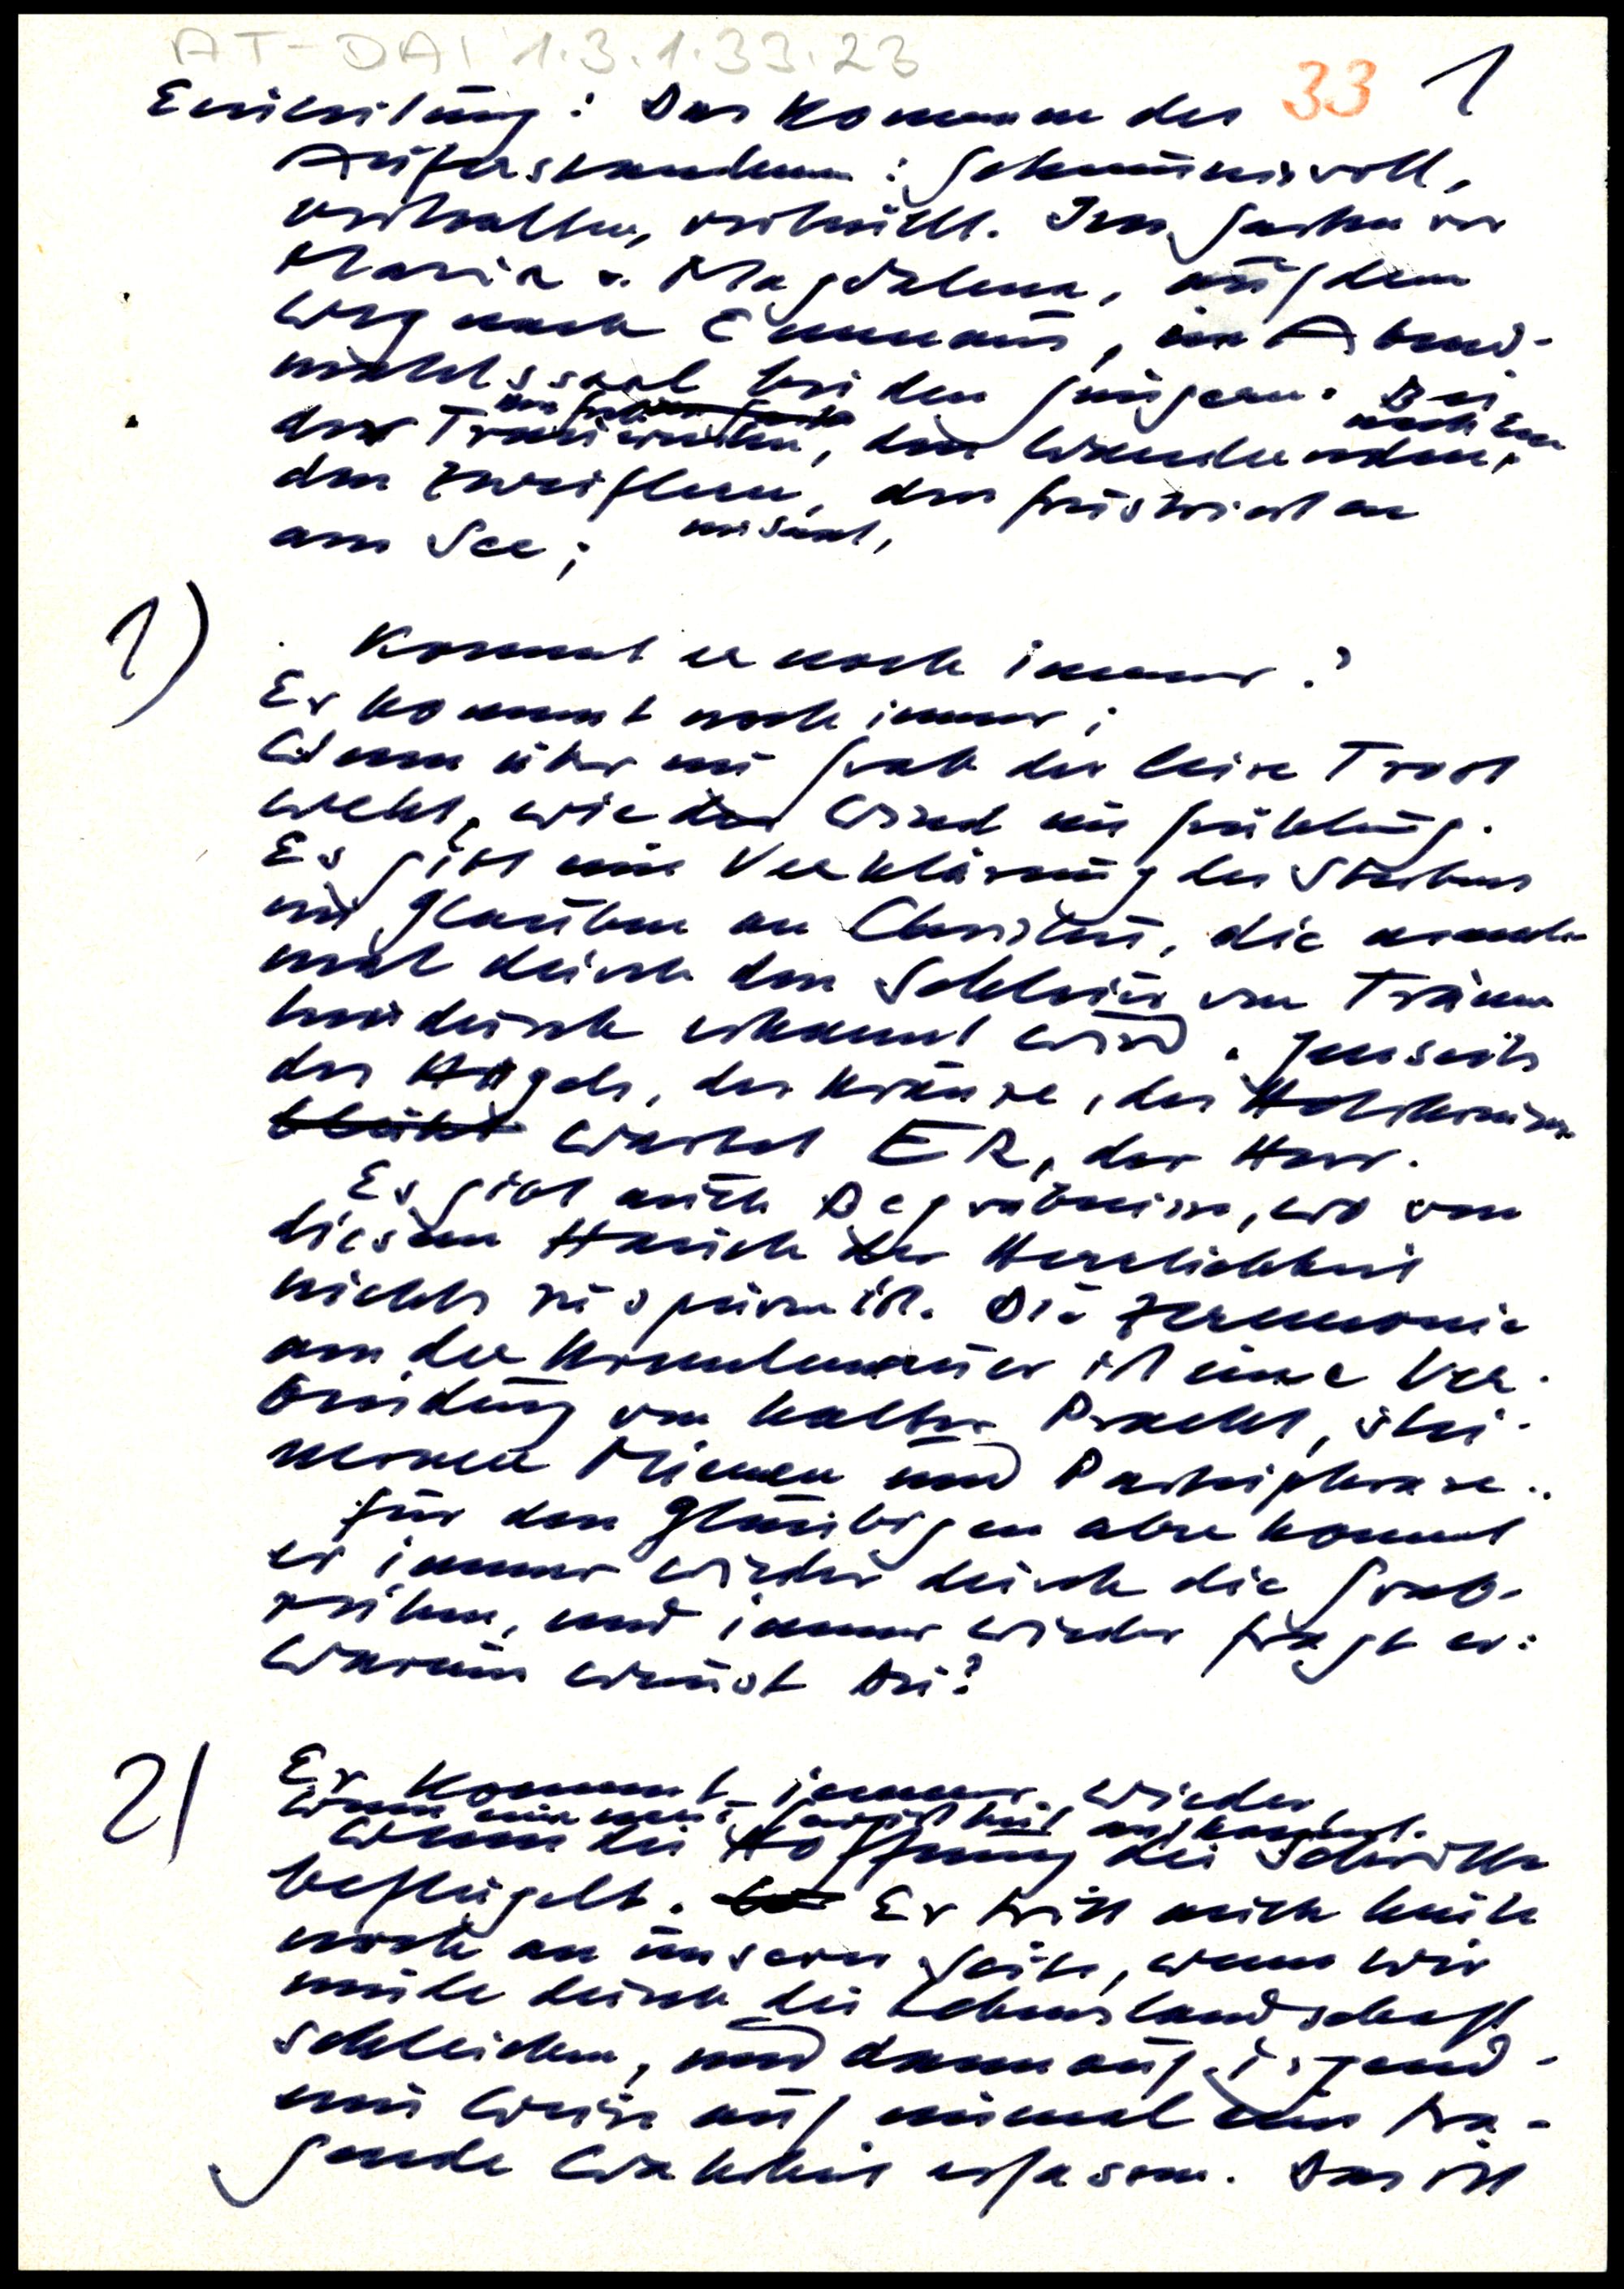 AT-DAI 1.3.1.33.23
33 1
Einleitung: Das Kommen des
Auferstandenen: Geheimnisvoll,
verhalten, verhüllt. Im Garten vor
Maria v. Magdalena, auf dem
Weg nach Emmaus, im Abend-
mahlssaal bei den Jüngern. Bei
der Trauernden, den Wandernden,
den Zweiflern, den
im Saal,
am See;
1)
Kommt er noch immer?
Er kommt noch immer;
Wenn über ein Grab der leise Trost
weht, wie der Wind im Frühling.
Es gibt eine Verklärung des Sterbens
im Glauben an Christus, die manch-
mal durch den Schleier von Tränen
hindurch erkannt wird. Jenseits
des Hügels, der Kränze, des Holzkreuzes
wartet ER, der Herr.
Es gibt auch Begräbnisse, wo von
diesem Hauch der Herrlichkeit
nichts zu spüren ist. Die Zeremonie
an der Kremlmauer ist eine Ver-
bindung von kalter Pracht, stei-
nernen Mienen und Parteiphrase..
Für den Gläubigen aber kommt
er immer wieder durch die Grab-
reihen, und immer wieder fragt er:
Warum weinst Du?
2)
Er kommt immer wieder
wenn eine neue Gewißheit
Wenn die Hoffnung die Schritte
beflügelt. Er tritt auch heute
noch an unsere Seite, wenn wir
müde durch die Lebenslandschaft
schleichen, und dann auf irgend-
eine Weise auf einmal eine tra-
gende Wahrheit erfassen. Das ist